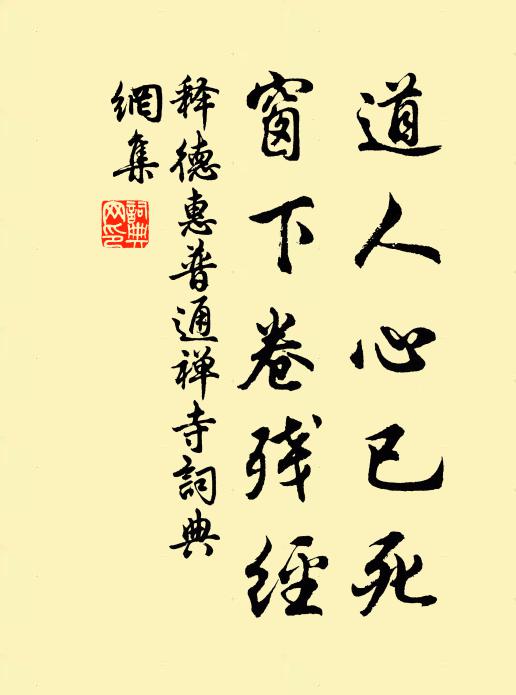 道人心已死
窗下卷残經
释德惠普通禅寺詞典
網集
詞典
网印